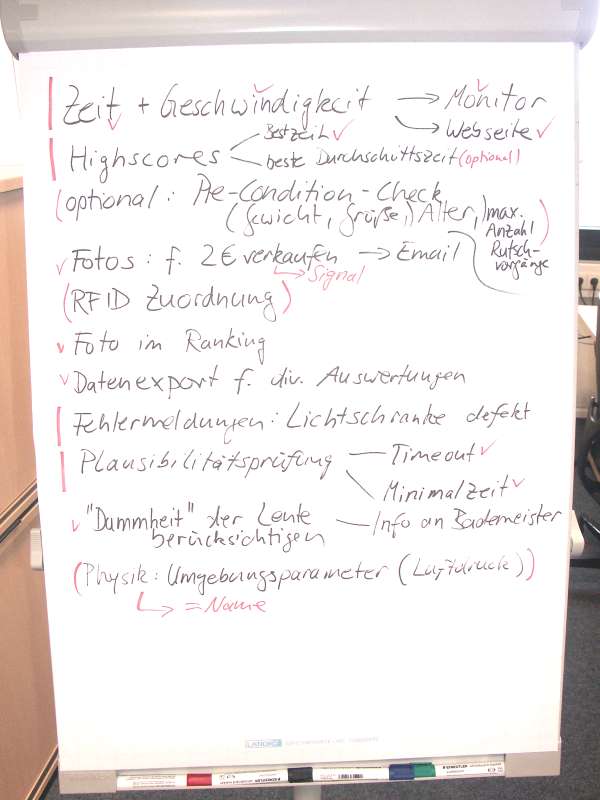 Zeit + Geschwindigkeit → Monitor
→ Webseite
Highscores Bestzeit
beste Durchschittszeit (optional)
(optional: Pre-Condition-Check
(Gewicht, Größe,) Alter, max.
Anzahl
Rutsch-
vorgänge)
Fotos: f. 2€ verkaufen → Email
↳ Signal
(RFID Zuordnung)
Foto im Ranking
Datenexport f. div. Auswertungen
Fehlermeldungen: Lichtschranke defekt
Plausibilitätsprüfung — Timeout
Minimalzeit
"Dummheit" der Leute — Info an Bademeister
berücksichtigen
(Physik: Umgebungsparameter (Luftdruck))
↳ = Name